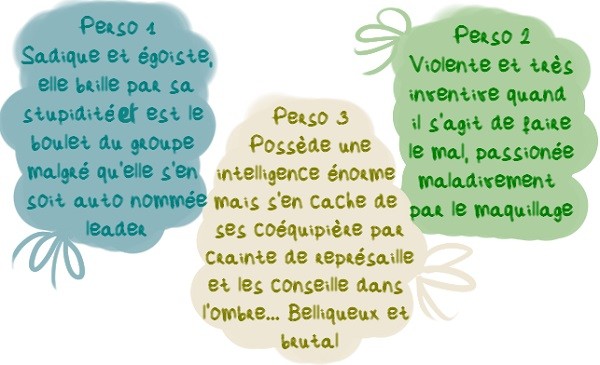 Perso 1
Sadique et égoiste,
elle brille par sa
stupidité et est le
boulet du groupe
malgré qu'elle s'en
soit auto nommée
leader
Perso 2
Violente et très
inventive quand
il s'agit de faire
le mal, passionée
maladivement
par le maquillage
Perso 3
Possède une
intelligence énorme
mais s'en cache de
ses coéquipière par
crainte de représaille
et les conseille dans
l'ombre... Belliqueux et
brutal